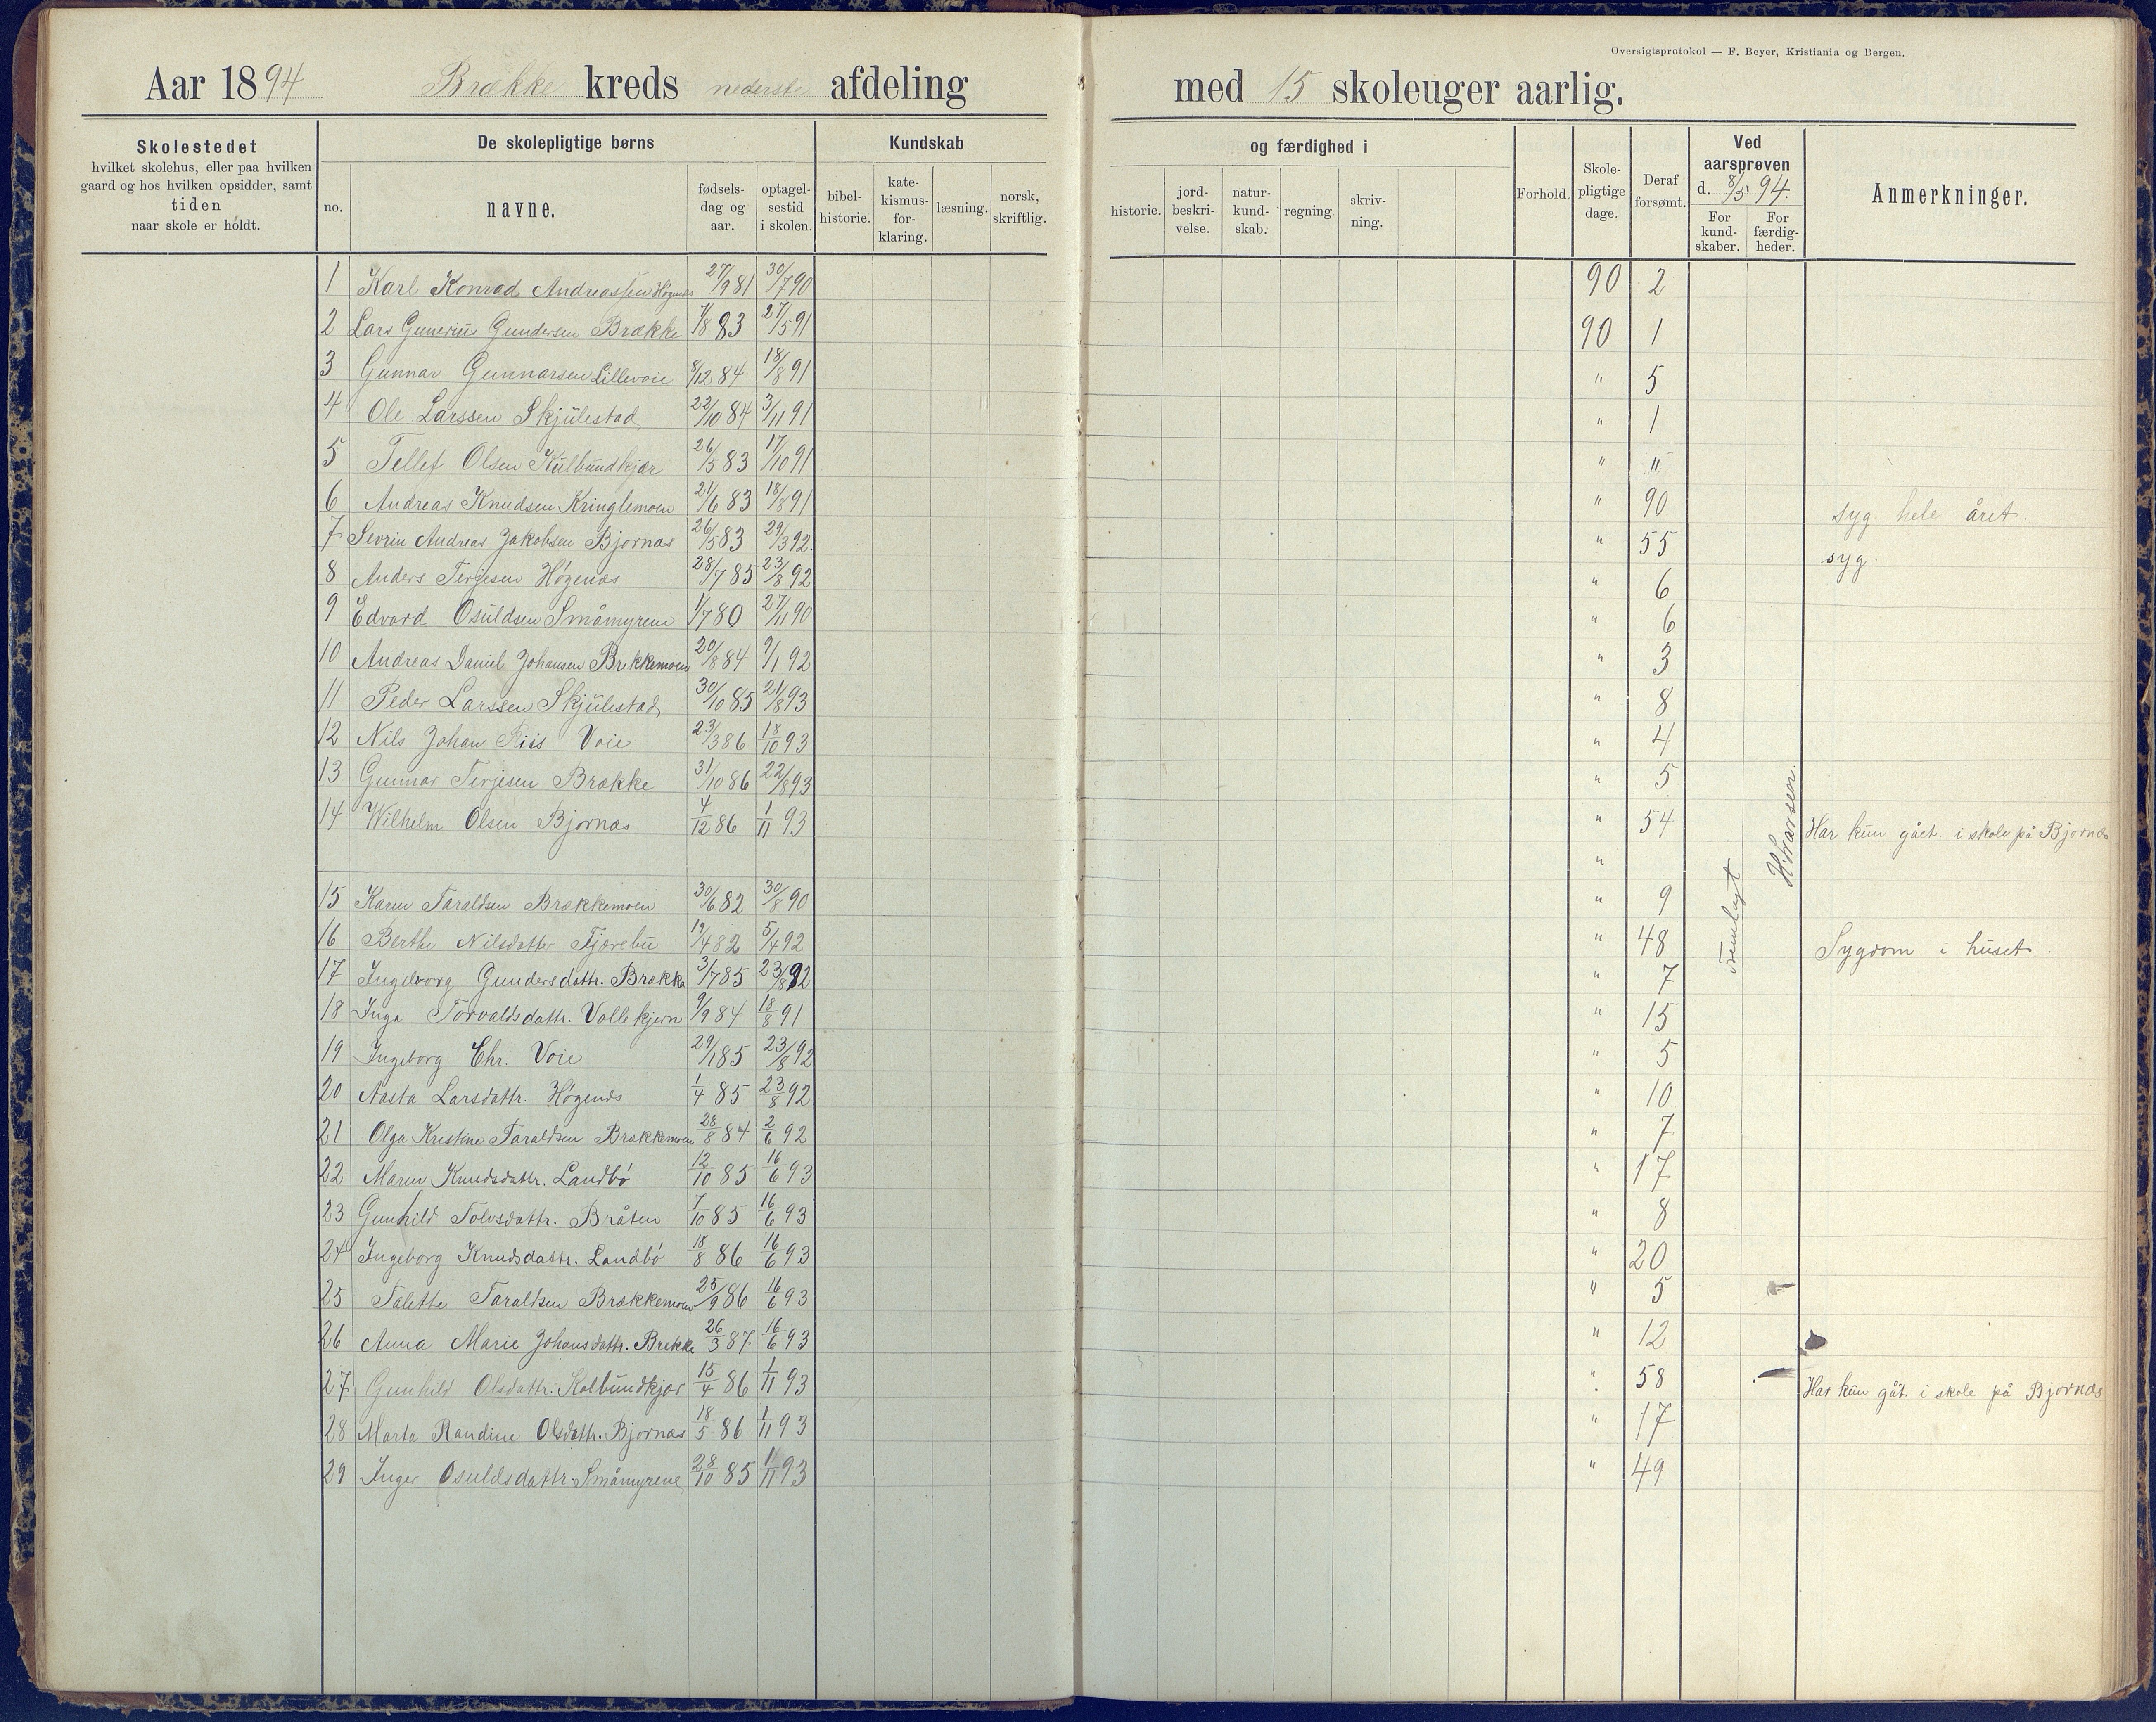 Oversigtsprotokol — F. Beyer, Kristiania og Bergen.
Aar 1894 Brække kreds nederste afdeling med 15 skoleuger aarlig.
Skolestedet hvilket skolehus, eller paa hvilken gaard og hos hvilken opsidder, samt tiden naar skole er holdt.
De skolepligtige børns
no. navne. fødsels-dag og aar. optagel-sestid i skolen.
Kundskab og færdighed i
bibel-historie. kate-kismus-for-klaring. læsning. norsk, skriftlig. historie. jord-beskri-velse. natur-kund-skab. regning. skriv-ning.
Forhold. Skole-pligtige dage. Deraf forsømt. Ved aarsprøven d. 8/5 94. For kund-skaber. For færdig-heder. Anmerkninger.
1 Karl Konrad Andreassen Høgenes 27/9 81 30/7 90 90 2
2 Lars Gunerius Gundersen Brække 7/8 83 27/5 91 90 1
3 Gunnar Gunnarsen Lillevoie 8/12 84 18/8 91 " 5
4 Ole Larssen Skjulestad 22/10 84 3/11 91 " 1
5 Tellef Olsen Kulbundkjær 26/5 83 17/10 91 " "
6 Andreas Knudsen Kringlemoen 21/6 83 18/8 91 " 90 syg hele året.
7 Sevrin Andreas Jakobsen Bjornæs 26/5 83 29/3 92. " 55 syg.
8 Anders Terjesen Høgenæs 28/7 85 23/8 92 " 6
9 Edvard Osuldsen Småmyrene 1/7 80 27/11 90 " 6
10 Andreas Daniel Johansen Brekkemoen 20/8 84 9/1 92 " 3
11 Peder Larssen Skjulestad 30/10 85 21/8 93 " 8
12 Nils Johan Riis Voie 23/3 86 18/10 93 " 4
13 Gunnar Terjesen Brække 31/10 86 22/8 93 " 5
14 Wilhelm Olsen Bjornæs 4/12 86 1/11 93 " 54 Har kun gået i skole på Bjornæs
"
15 Karen Taraldsen Brækkemoen 30/6 82 30/8 90 " 9
16 Berthe Nilsdatter Tjærebu 19/4 82 5/4 92 " 48 Sygdom i huset.
17 Ingeborg Gundersdattr. Brække 3/7 85 23/8 92 " 7
18 Inga Torvaldsdattr. Vollekjern 9/9 84 18/8 91 " 15
19 Ingeborg Chr. Voie 29/1 85 23/8 92 " 5
20 Aasta Larsdattr. Høgenæs 1/4 85 23/8 92 " 10
21 Olga Kristine Taraldsen Brækkemoen 28/8 84 2/6 92 " 7
22 Maren Knudsdattr. Landbø 12/10 85 16/6 93 " 17
23 Gunhild Tolvsdattr. Bråten 7/10 85 16/6 93 " 8
24 Ingeborg Knudsdattr. Landbø 18/8 86 16/6 93 " 20
25 Talette Taraldsen Brækkemoen 25/9 86 16/6 93 " 5
26 Anna Marie Johansdattr. Brekke 26/3 87 16/6 93 " 12
27 Gunhild Olsdattr. Kolbundkjær 15/4 86 1/11 93 " 58 Har kun gåt i skole på Bjornæs
28 Marta Randine Olsdattr. Bjornæs 18/5 86 1/11 93 " 17
29 Inger Osuldsdattr. Småmyrene 28/10 85 1/11 93 " 49
Fremlagt